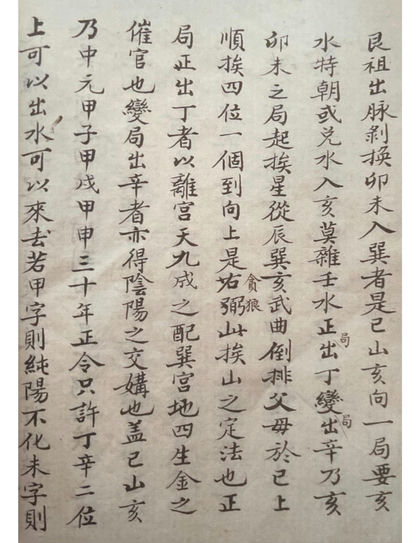 艮祖出脉剥換卯未入巽者是巳山亥向一局要亥
水特朝或兑水入亥莫雜壬水正局出丁變局出辛乃亥
卯未之局起挨星從辰巽亥武曲倒排父母於巳上
順挨四位一個到向上是右弼貪狼此挨山之定法也正
局正出丁者以離宮天九成之配巽宮地四生金之
催官也變局出辛者亦得陰陽之交媾也盖巳山亥
乃中元甲子甲戌甲申三十年正令只許丁辛二位
上可以出水可以來去若甲字則純陽不化未字則